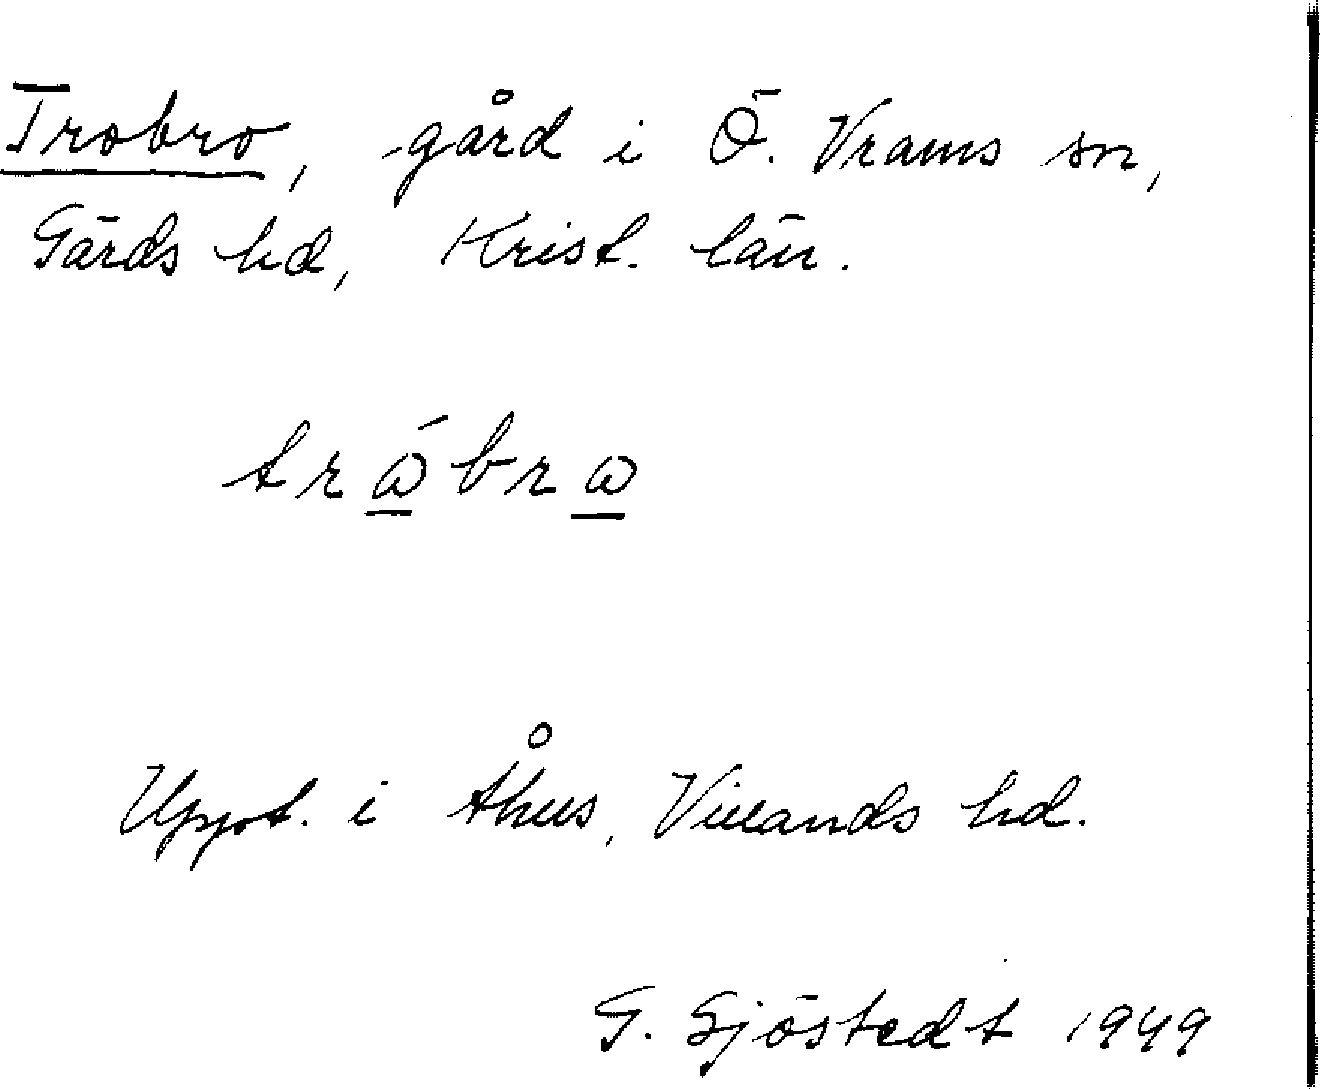 Trobro, gård i Ö. Vrams sn,
Gärds hd, Krist. län.
trώ̲brω̲
Uppt. i Åhus, Villands hd.
G. Sjöstedt 1949